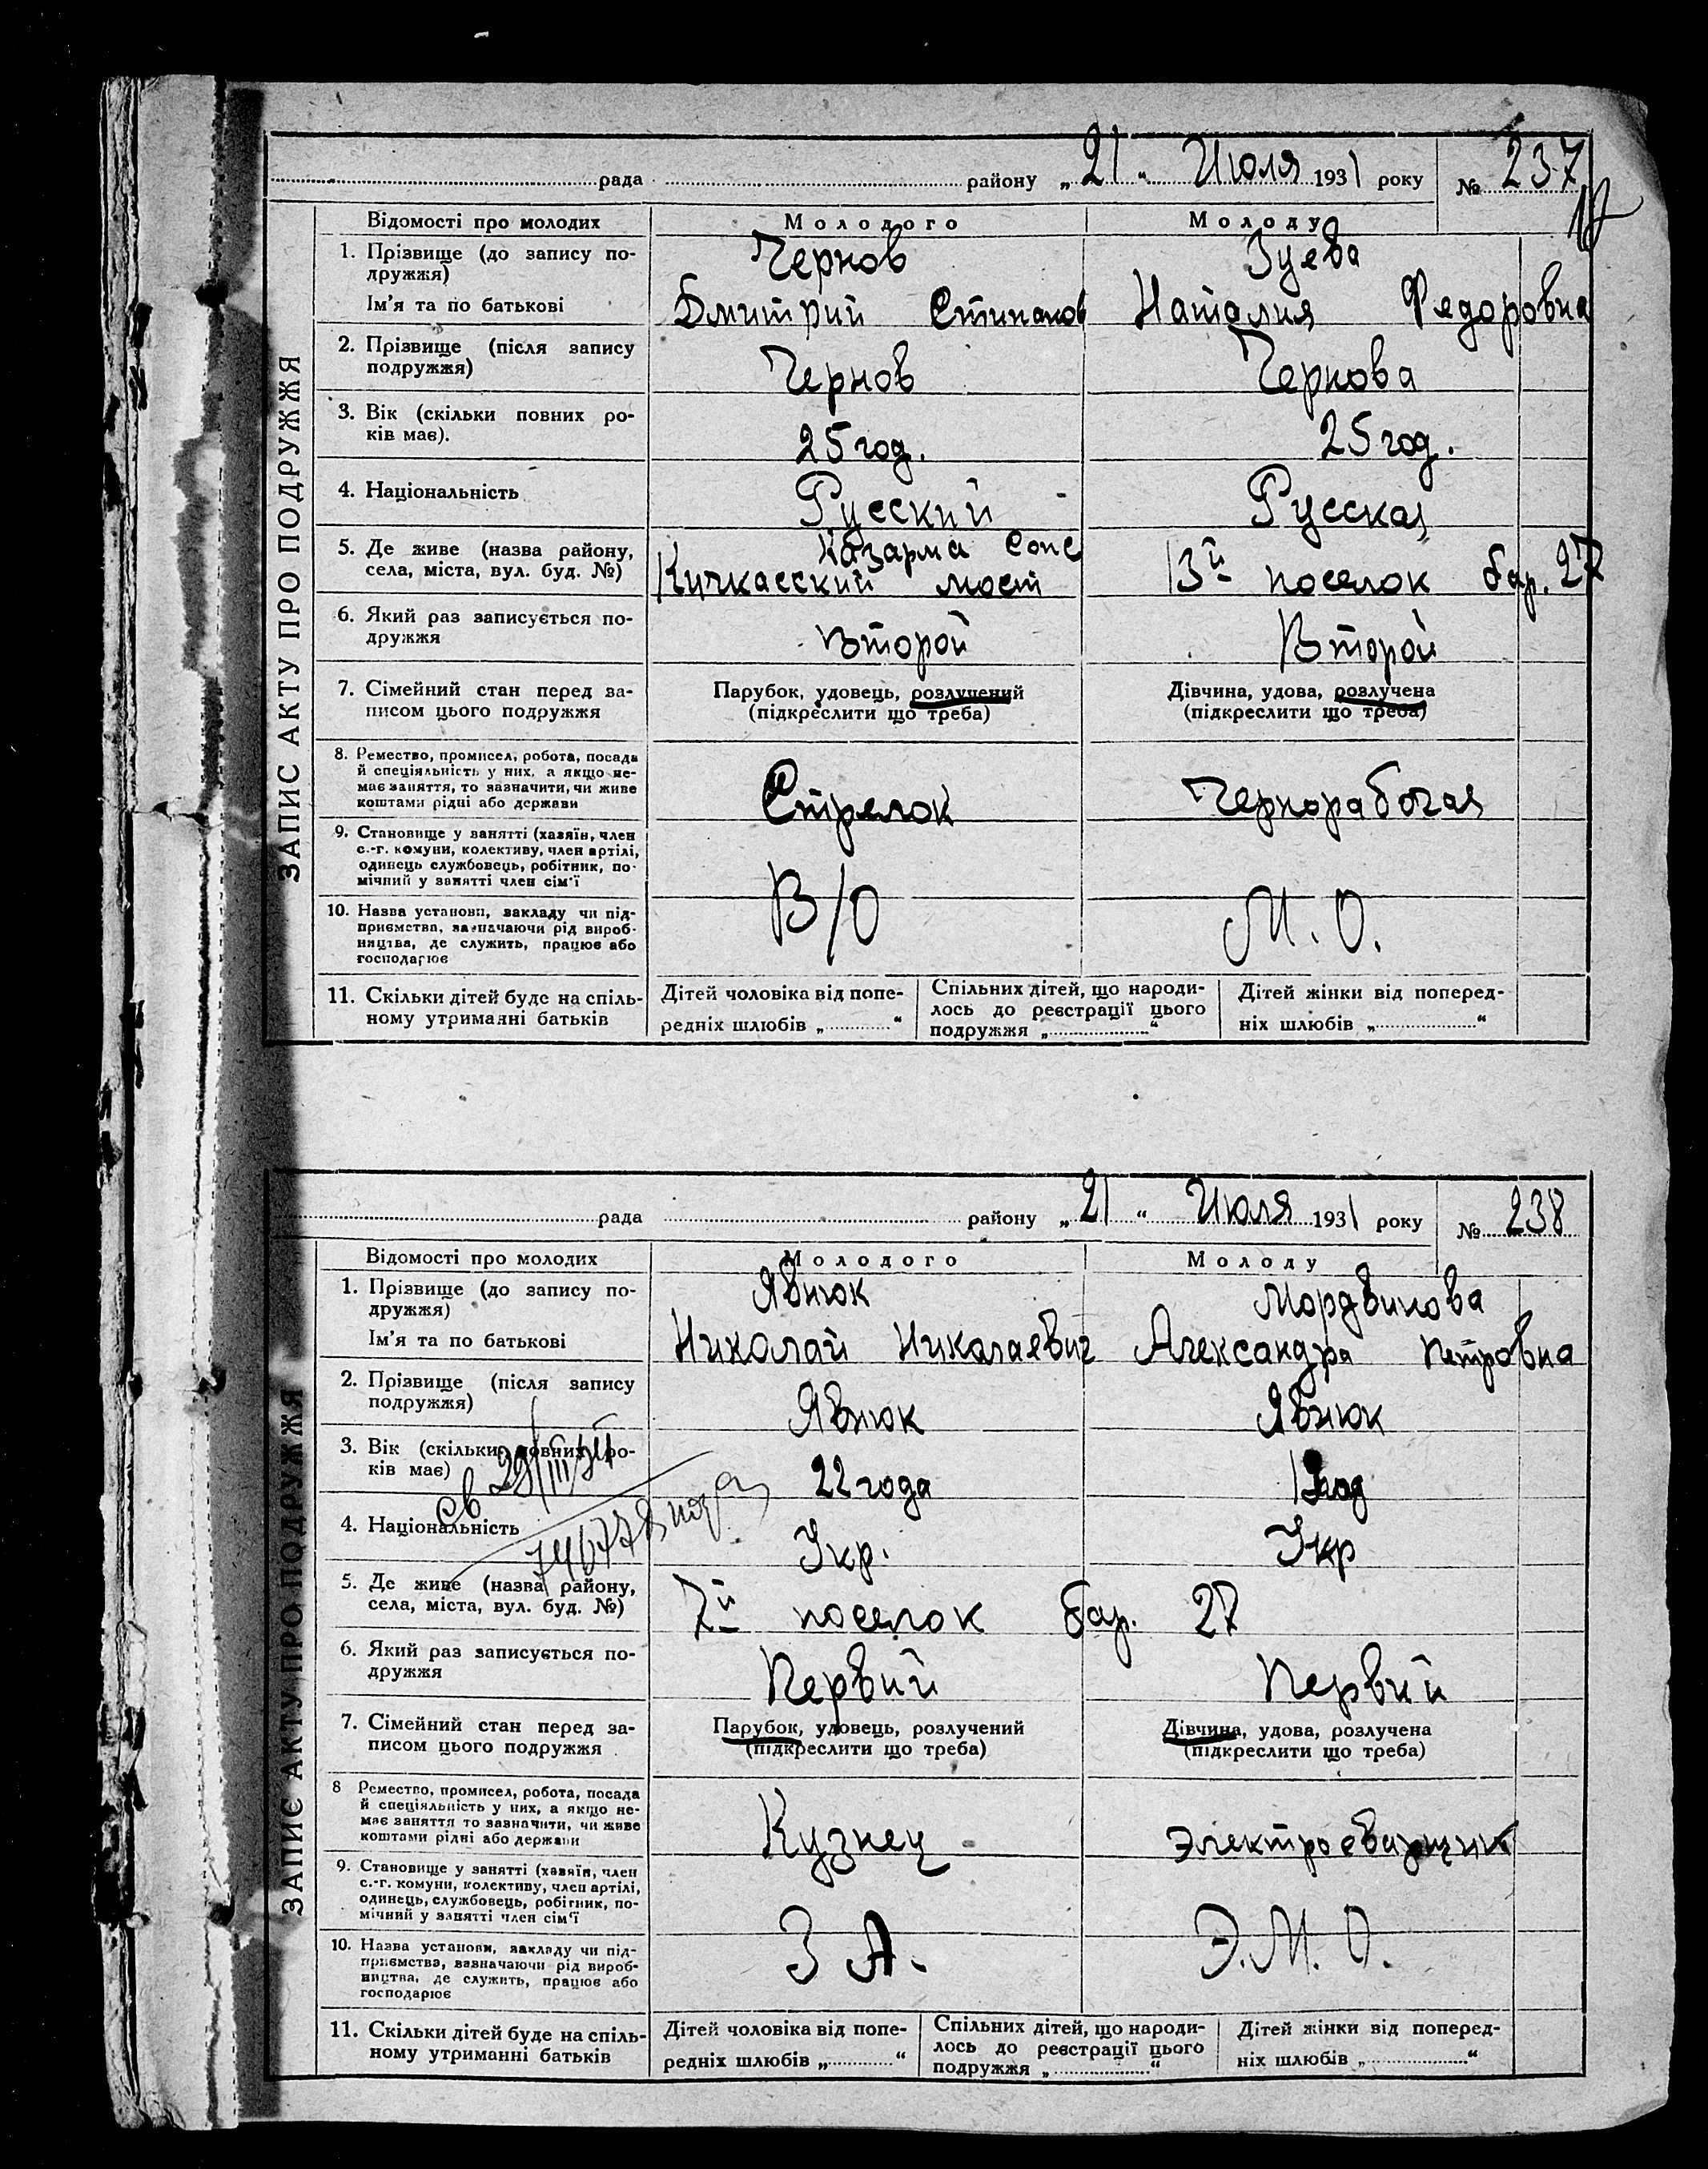 рада района „ 21 “ Июля 1931 року № 237
ЗАПИС АКТУ ПРО ПОДРУЖЖЯ
Відомості про молодих Молодого Молоду
1. Прізвище (до запису по- Чернов Зуева
дружжя)
Ім'я та по батькові Дмитрий Стипанов Наталия Федоровна
2. Прізвище (після запису Чернов Чернова
подружжя)
3. Вік (скільки повних ро- 25 год. 25 год.
ків має).
4. Національність Русский Русская
5. Де живе (назва району, Казарма
села, міста, вул. буд. №) Кичкасский мост 13й поселок бар. 27
6. Який раз записується по- Второй Второй
дружжя
7. Сімейний стан перед за- Парубок, удовець, розлучений Дівчина, удова, розлучена
писом цього подружжя (підкреслити що треба) (підкреслити що треба)
8. Ремество, промисел, робота, посада
й спеціяльність у них, а якщо не-
має заняття, то зазначити, чи живе Стрелок Чернорабочая
коштами рідні або держави
9. Становище у занятті (хазяїн, член
с.-г. комуни, колективу, член артілі,
одинець службовець, робітник, по-
мічний у занятті член сім'ї
10. Назва установи, закладу чи під- В/О М.О.
приємства, зазначаючи рід вироб-
ництва, де служить, працює або
господарює
11. Скільки дітей буде на спіль- Дітей чоловіка від попе- Спільних дітей, що народи- Дітей жінки від поперед-
ному утриманні батьків редніх шлюбів „ “ лось до реєстрації цього ніх шлюбів „ “
подружжя „ “
рада району „ 21 “ Июля 1931 року № 238
ЗАПИС АКТУ ПРО ПОДРУЖЖЯ
Відомості про молодих Молодого Молоду
1. Прізвище (до запису по- Явнюк Мордвинова
дружжя)
Ім'я та по батькові Николай Николаевич Александра Петровна
2. Прізвище (після запису Явнюк Явнюк
подружжя)
3. Вік (скільки повних ро- 22 года
ків має)
4. Національність Укр. Укр
5. Де живе (назва району,
села, міста, вул. буд. №) 7й поселок бар. 27
6. Який раз записується по- Первий Первий
дружжя
7. Сімейний стан перед за- Парубок, удовець, розлучений Дівчина, удова, розлучена
писом цього подружжя (підкреслити що треба) (підкреслити що треба)
8 Ремество, промисел, робота, посада
й спеціяльність у них, а якщо не-
має заняття то зазначити, чи живе Кузнец Электросварщик
коштами рідні або держави
9. Становище у занятті (хазяїн, член
с.-г. комуни, колективу, член артілі,
одинець, службовець, робітник, по-
мічний у занятті член сім'ї
10. Назва установи, закладу чи під- З А. Э.М.О.
приємства, зазначаючи рід вироб-
ництва, де служить, працює або
господарює
11. Скільки дітей буде на спіль- Дітей чоловіка від попе- Спільних дітей, що народи- Дітей жінки від поперед-
ному утриманні батьків редніх шлюбів „ “ лось до реєстрації цього ніх шлюбів „ “
подружжя „ “